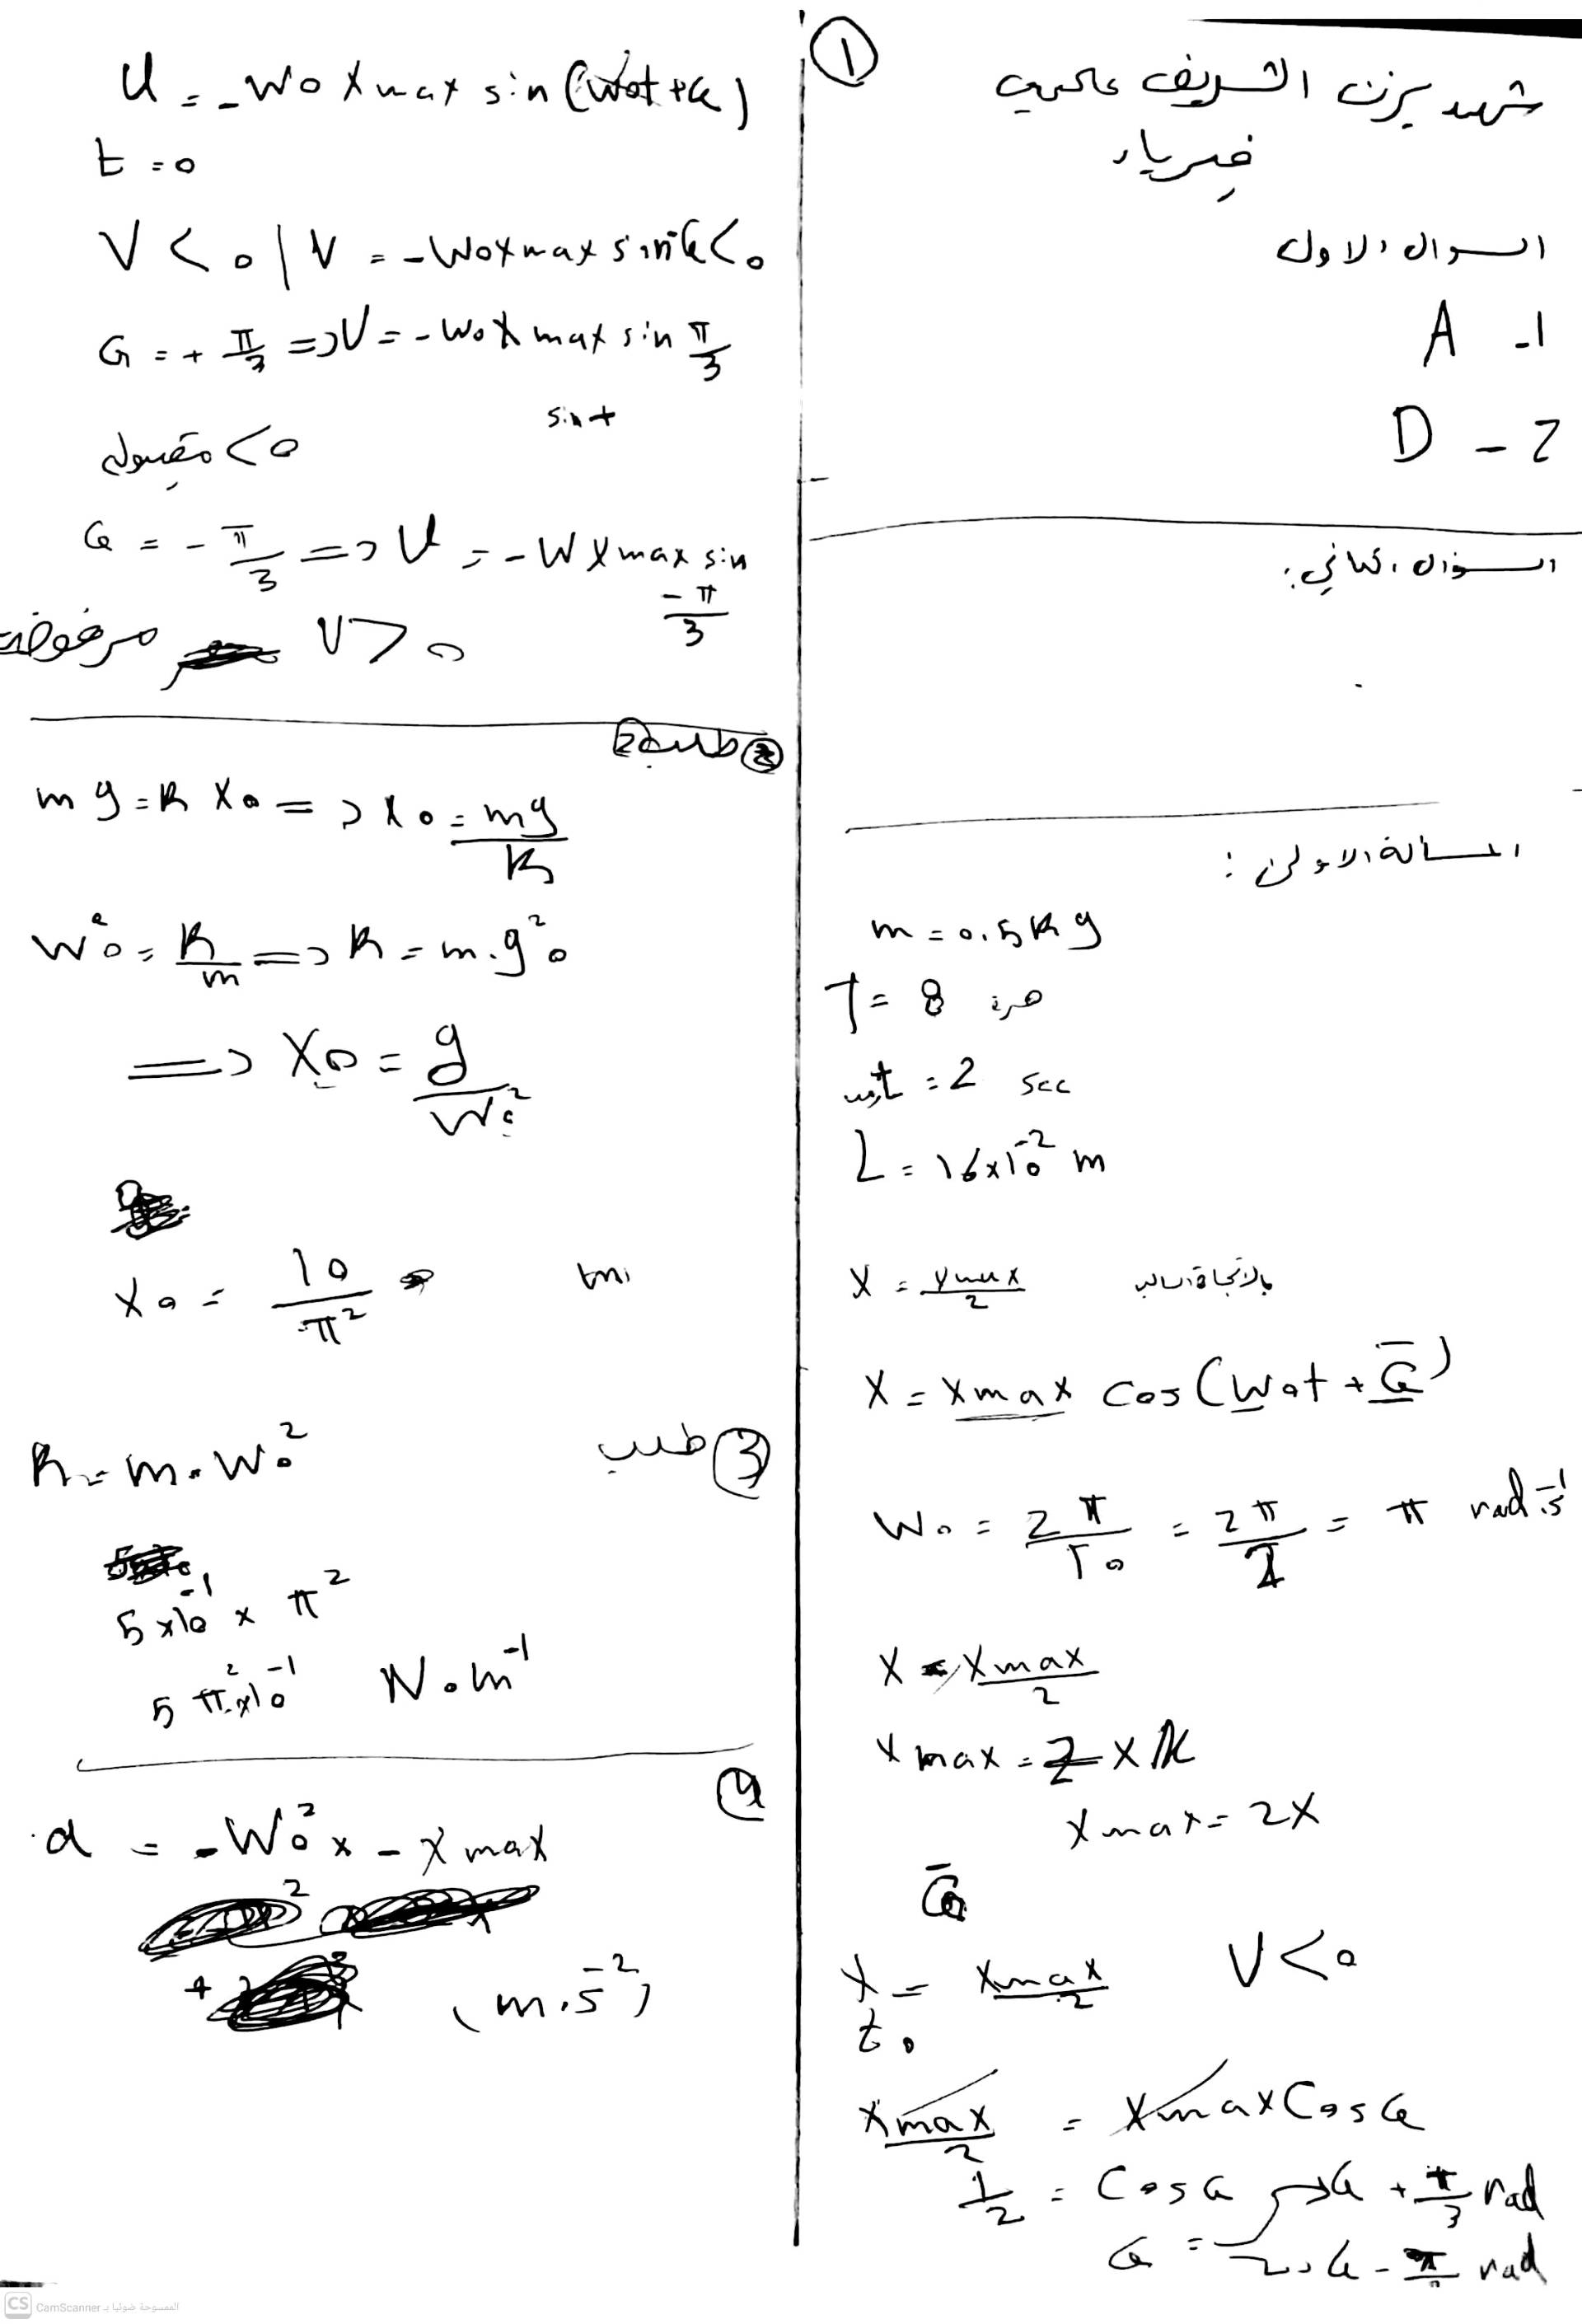 ①
شهد يزن الشريف علمي
فيزياء
السوال الاول
1- A
2 - D
السؤال الثاني:
المسألة الاولى:
m = 0.5 Kg
T = 8 هزة
t = 2 sec
L = 16x10^-2 m
X = Xmax/2 بالاتجاه السالب
X = Xmax cos(W0t + φ̄)
W0 = 2π/T0 = 2π/2 = π rad.s^-1
X = Xmax/2
Xmax = 2 x X
Xmax = 2X
φ̄
X = Xmax/2 V<0
t0
Xmax/2 = Xmax Cos φ
1/2 = Cos φ => φ + π/3 rad
φ = => φ - π/3 rad
V = -W0 Xmax sin(W0t + φ)
t = 0
V < 0 | V = -W0Xmax sin φ < 0
φ = + π/3 => V = -W0 Xmax sin π/3
sin +
مقبولة < 0
φ = - π/3 => V = -W Xmax sin
-π/3
V > 0 مرفوضة
② طلب 2
m g = K X0 => X0 = mg/K
W0^2 = K/m => K = m.g0^2
=> X0 = g/W0^2
X0 = 10/π^2 m
③ طلب
K = m. W0^2
5x10^-1 x π^2
5π^2x10^-1 N.m^-1
④
a = -W0^2 x - Xmax
(m.s^-2)
CS الممسوحة ضوئيا بـ CamScanner